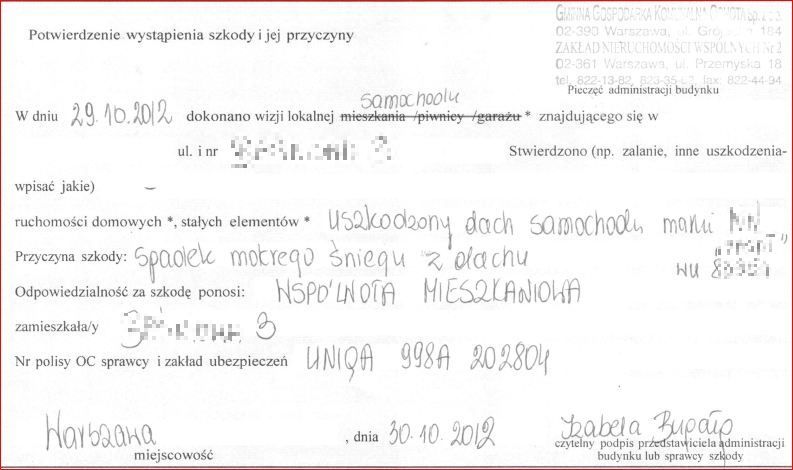 GMINA GOSPODARKA KOMUNALNA OCHOTA sp. z o.o.
02-390 Warszawa, ul. Grójecka 184
ZAKŁAD NIERUCHOMOŚCI WSPÓLNYCH Nr 2
02-361 Warszawa, ul. Przemyska 18
tel. 822-13-82, fax: 822-44-94
Potwierdzenie wystąpienia szkody i jej przyczyny
Pieczęć administracji budynku
samochodu
W dniu 29.10.2012 dokonano wizji lokalnej mieszkania /piwnicy /garażu * znajdującego się w
ul. i nr Stwierdzono (np. zalanie, inne uszkodzenia-
wpisać jakie) –
ruchomości domowych *, stałych elementów * uszkodzony dach samochodu marki
Przyczyna szkody: spadek mokrego śniegu z dachu
WU
Odpowiedzialność za szkodę ponosi: WSPÓLNOTA MIESZKANIOWA
zamieszkała/y 3
Nr polisy OC sprawcy i zakład ubezpieczeń UNIQA 998A 202804
Warszawa , dnia 30.10.2012 Izabela
miejscowość
czytelny podpis przedstawiciela administracji
budynku lub sprawcy szkody